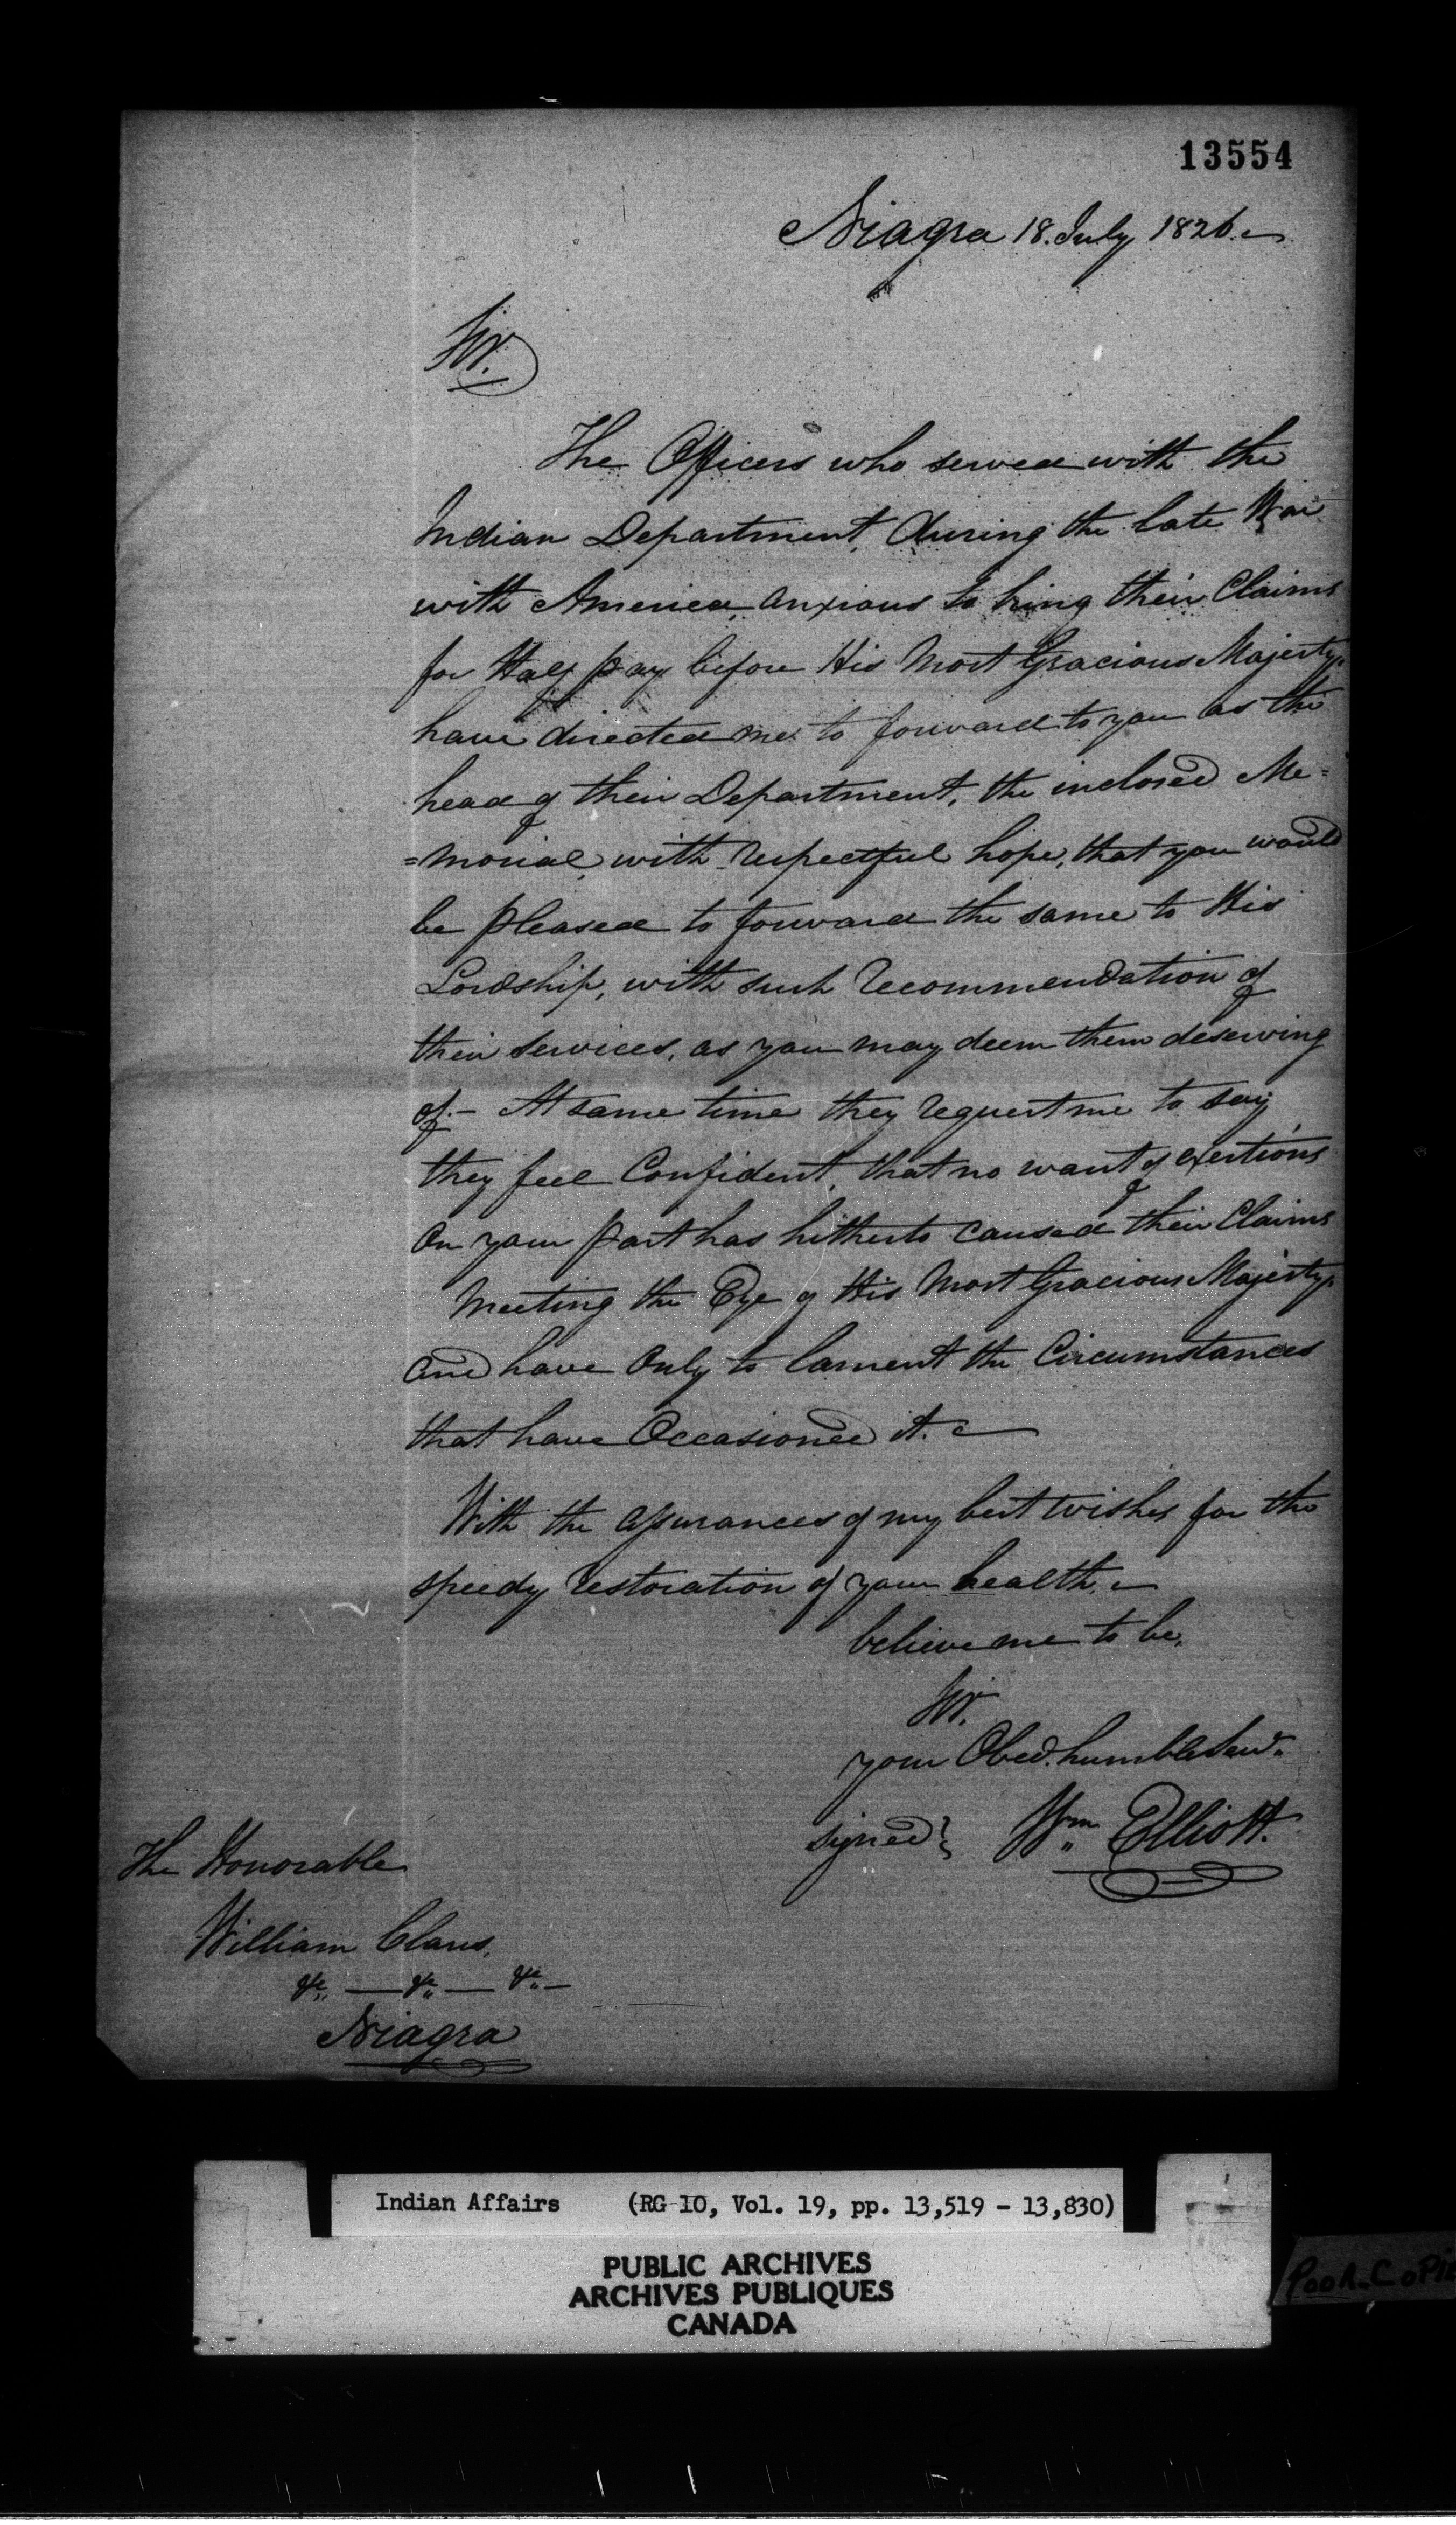 13554
Niagra 18. July 1826.
Sir.
The Officers who served with the
Indian Department, during the late War
with America, anxious to bring their Claims
for Half pay before His Most Gracious Majesty,
have directed me to forward to you as the
head of their Department, the inclosed Me=
=morial, with respectful hope, that you would
be pleased to forward the same to His
Lordship, with such recommendation of
their services, as you may deem them deserving
of. - At same time they request me to say
they feel Confident, that no want of exertions
On your part has hitherto caused their Claims
Meeting the Eye of His Most Gracious Majesty,
and have Only to lament the Circumstances
that have Occasioned it.
With the assurances of my best wishes for the
speedy restoration of your health,
believe me to be,
Sir.
your Obed. humble Servt.
signed} Wm Elliott.
The Honorable
William Claus,
&c. — &c. — &c. —
Niagra
Indian Affairs (RG 10, Vol. 19, pp. 13,519 - 13,830)
PUBLIC ARCHIVES
ARCHIVES PUBLIQUES
CANADA
Poor Copie